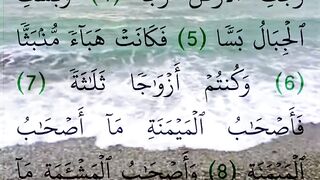 ٱلْجِبَالُ بَسًّا (5) فَكَانَتْ هَبَآءً مُّنۢبَثًّا
(6) وَكُنتُمْ أَزْوَٰجًا ثَلَٰثَةً (7)
فَأَصْحَٰبُ ٱلْمَيْمَنَةِ مَآ أَصْحَٰبُ
ٱلْمَيْمَنَةِ (8) وَأَصْحَٰبُ ٱلْمَشْـَٔمَةِ مَآ